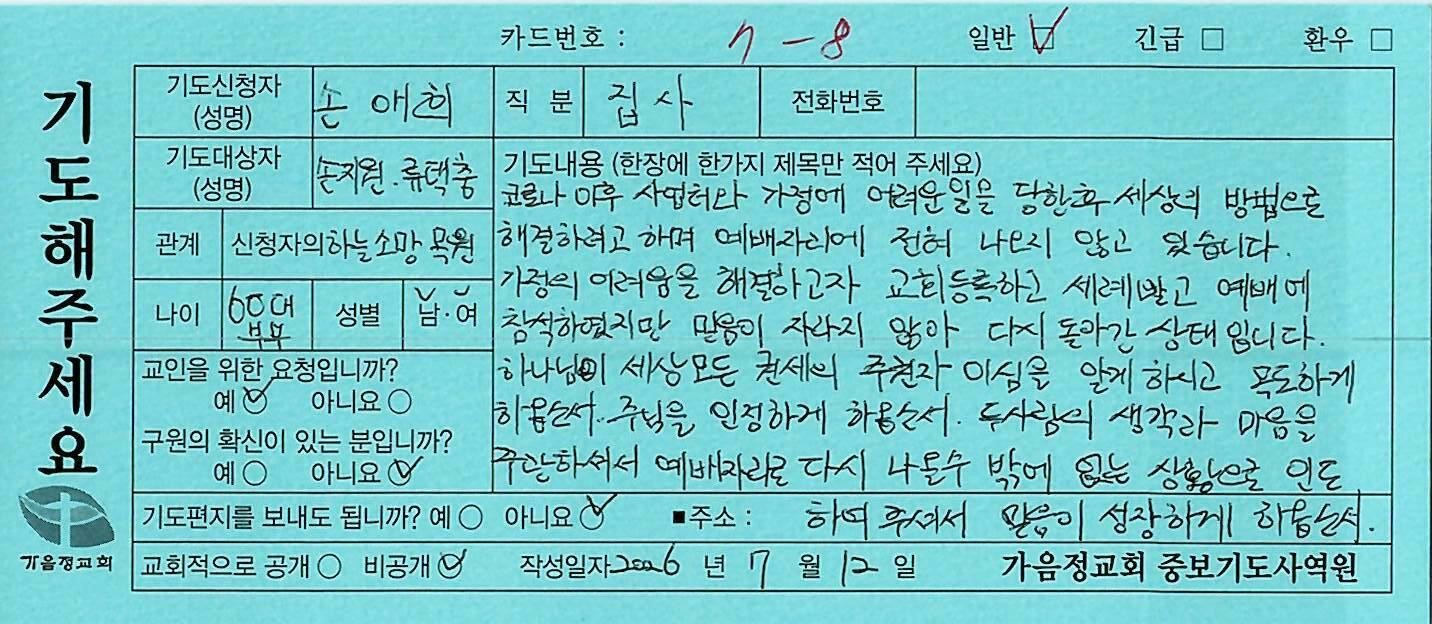 카드번호 : 7 - 8 일반 ☑ 긴급 □ 환우 □
기도해주세요
가음정교회
기도신청자 (성명) 손애희 직 분 집사 전화번호
기도대상자 (성명) 손지원. 류택충
관계 신청자의하늘소망 목원
나이 60대 부부 성별 남·여
교인을 위한 요청입니까?
예 ☑ 아니요 ○
구원의 확신이 있는 분입니까?
예 ○ 아니요 ☑
기도내용 (한장에 한가지 제목만 적어 주세요)
코로나 이후 사업터와 가정에 어려운일을 당한후 세상의 방법으로
해결하려고 하며 예배자리에 전혀 나오지 않고 있습니다.
가정의 어려움을 해결하고자 교회등록하고 세례받고 예배에
참석하였지만 믿음이 자라지 않아 다시 돌아간 상태입니다.
하나님이 세상모든 권세의 주권자 이심을 알게하시고 목도하게
하옵소서. 주님을 인정하게 하옵소서. 두사람의 생각과 마음을
주관하셔서 예배자리로 다시 나올수 밖에 없는 상황으로 인도
하여 주셔서 믿음이 성장하게 하옵소서.
기도편지를 보내도 됩니까? 예 ○ 아니요 ☑ ■주소 :
교회적으로 공개 ○ 비공개 ☑ 작성일자 2026 년 7 월 12 일 가음정교회 중보기도사역원